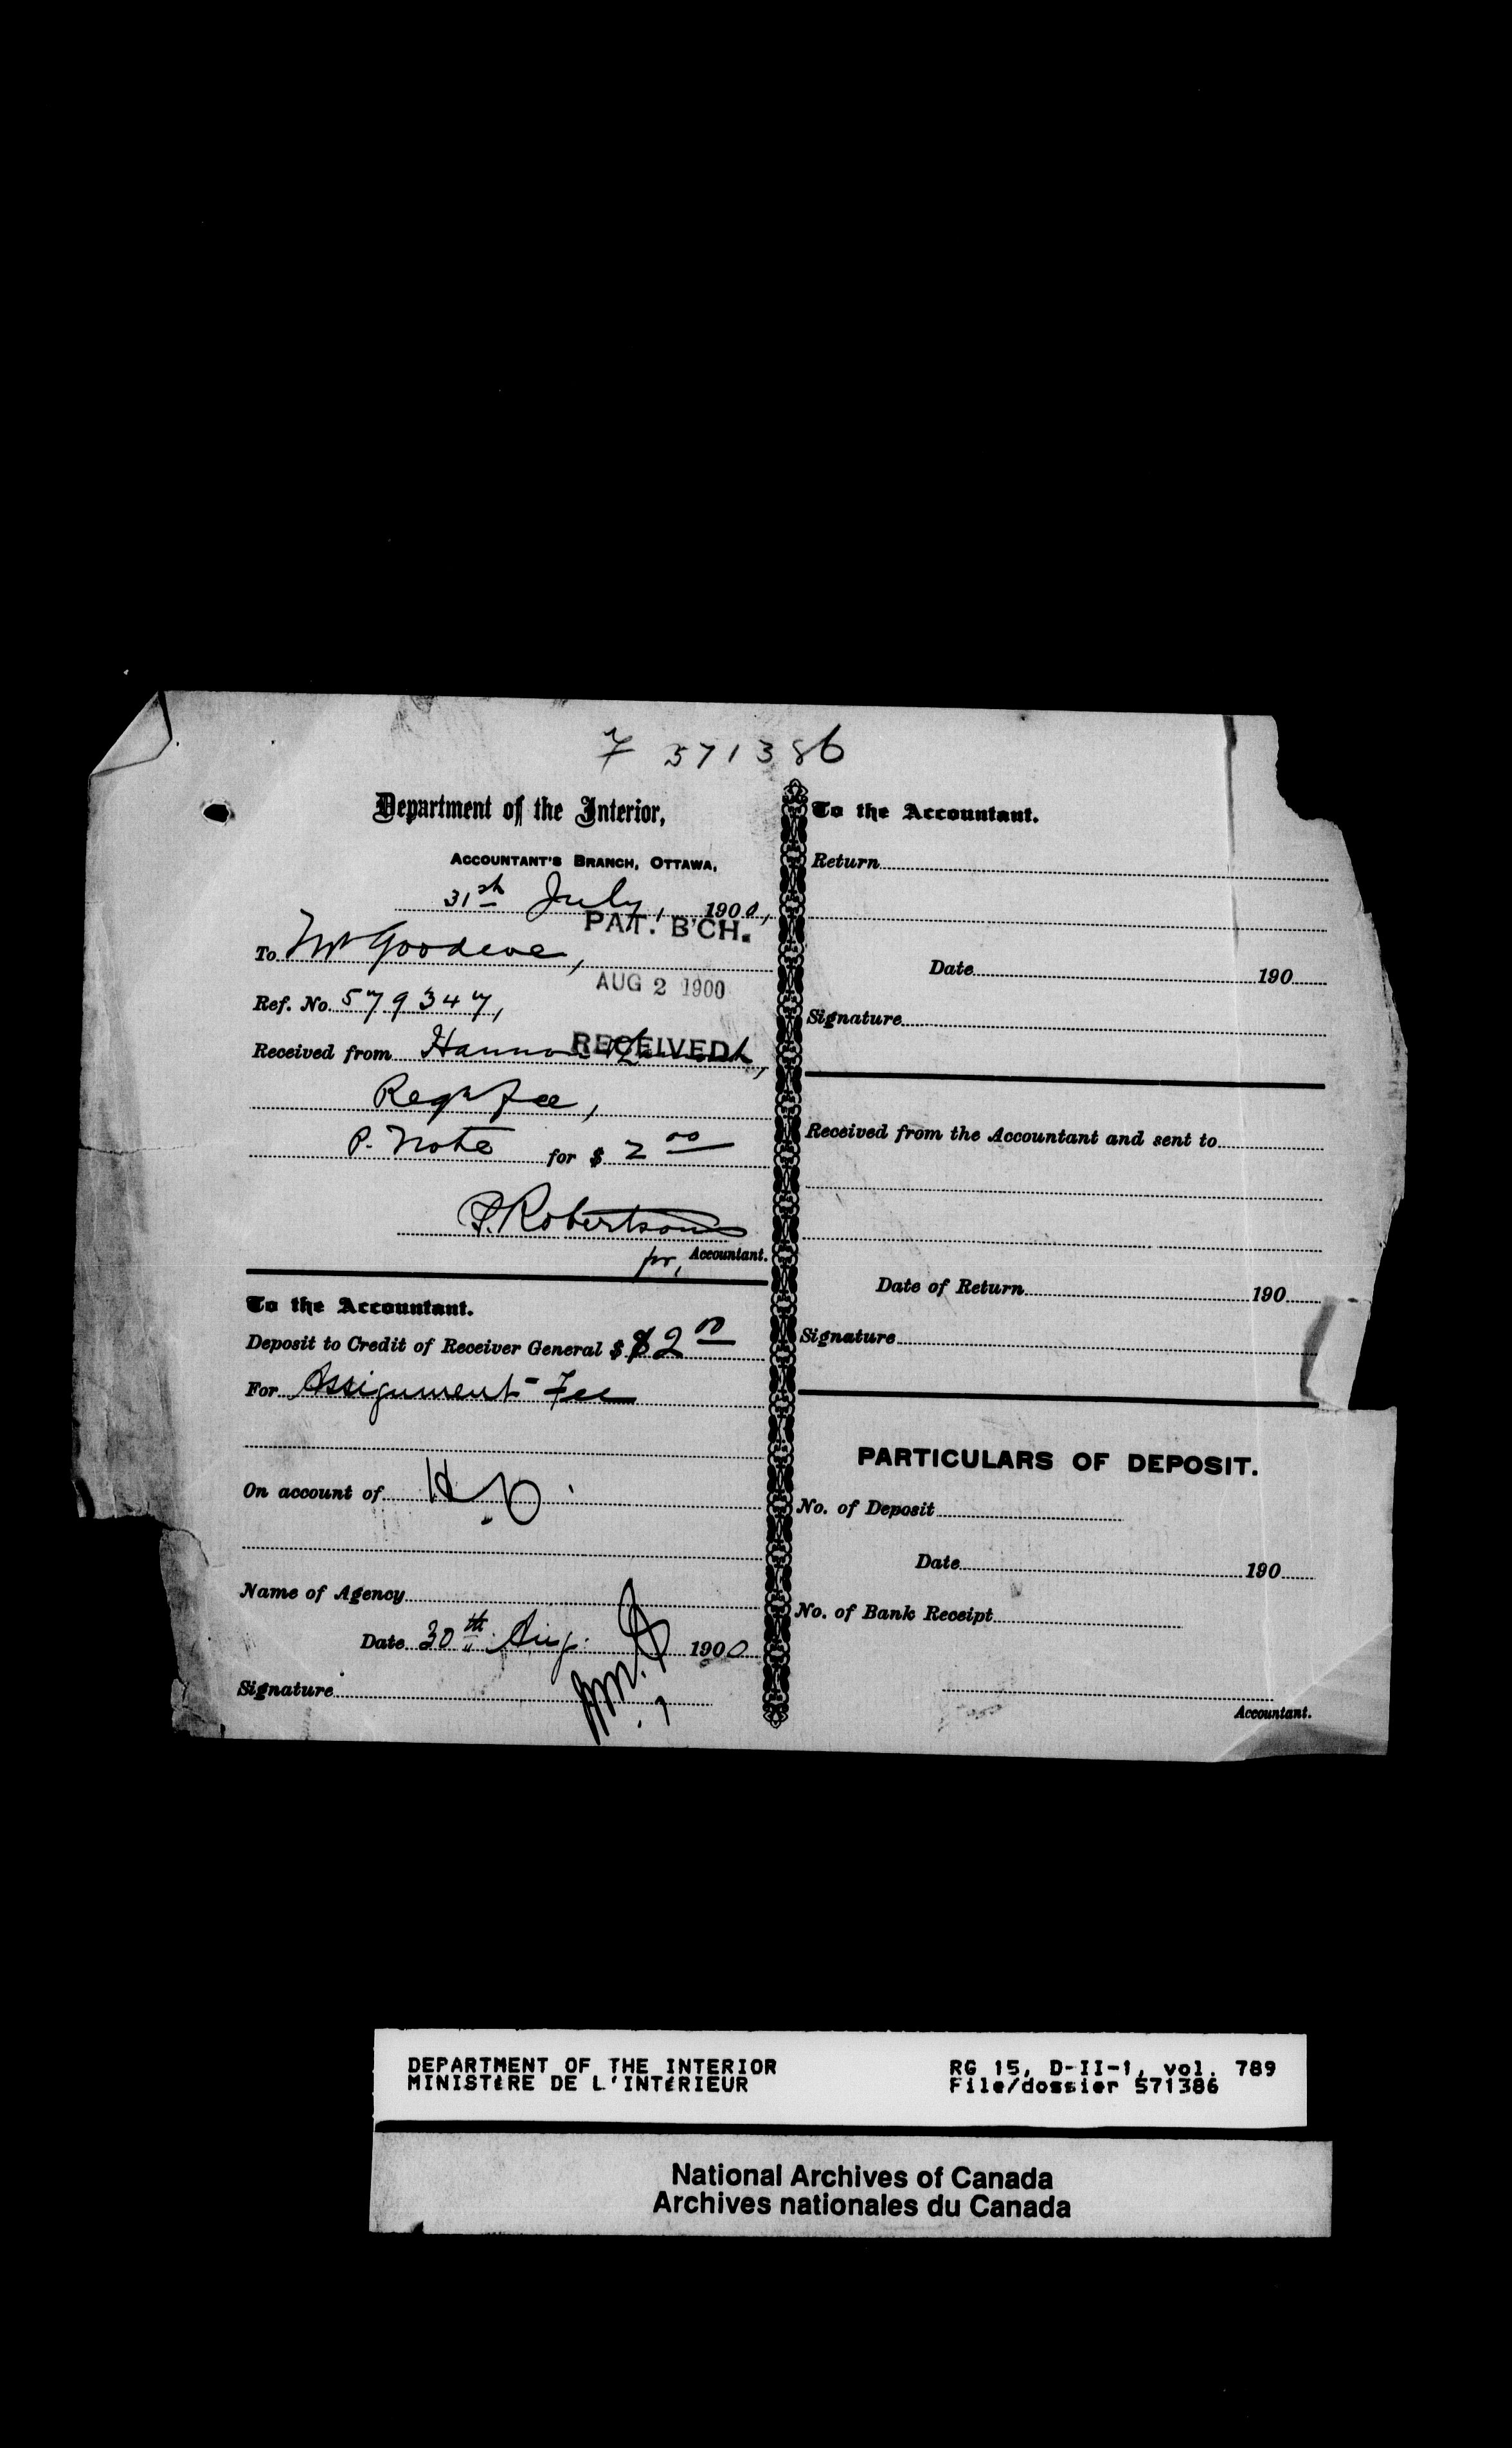 7 571386
Department of the Interior,
ACCOUNTANT'S BRANCH, OTTAWA,
31st July, 1900,
PAT. B'CH.
To Mr Goodeve,
AUG 2 1900
Ref. No. 579347,
RECEIVED
Received from
Regn fee,
P. Note for $ 2 00
P. Robertson
pr, Accountant.
To the Accountant.
Deposit to Credit of Receiver General $ $2 00
For Assignment Fee
On account of
Name of Agency
Date 30th Aug. 1900
Signature
To the Accountant.
Return
Date 190
Signature
Received from the Accountant and sent to
Date of Return 190
Signature
PARTICULARS OF DEPOSIT.
No. of Deposit
Date 190
No. of Bank Receipt
Accountant.
DEPARTMENT OF THE INTERIOR
MINISTÈRE DE L'INTÉRIEUR
RG 15, D-II-1, vol. 789
File/dossier 571386
National Archives of Canada
Archives nationales du Canada